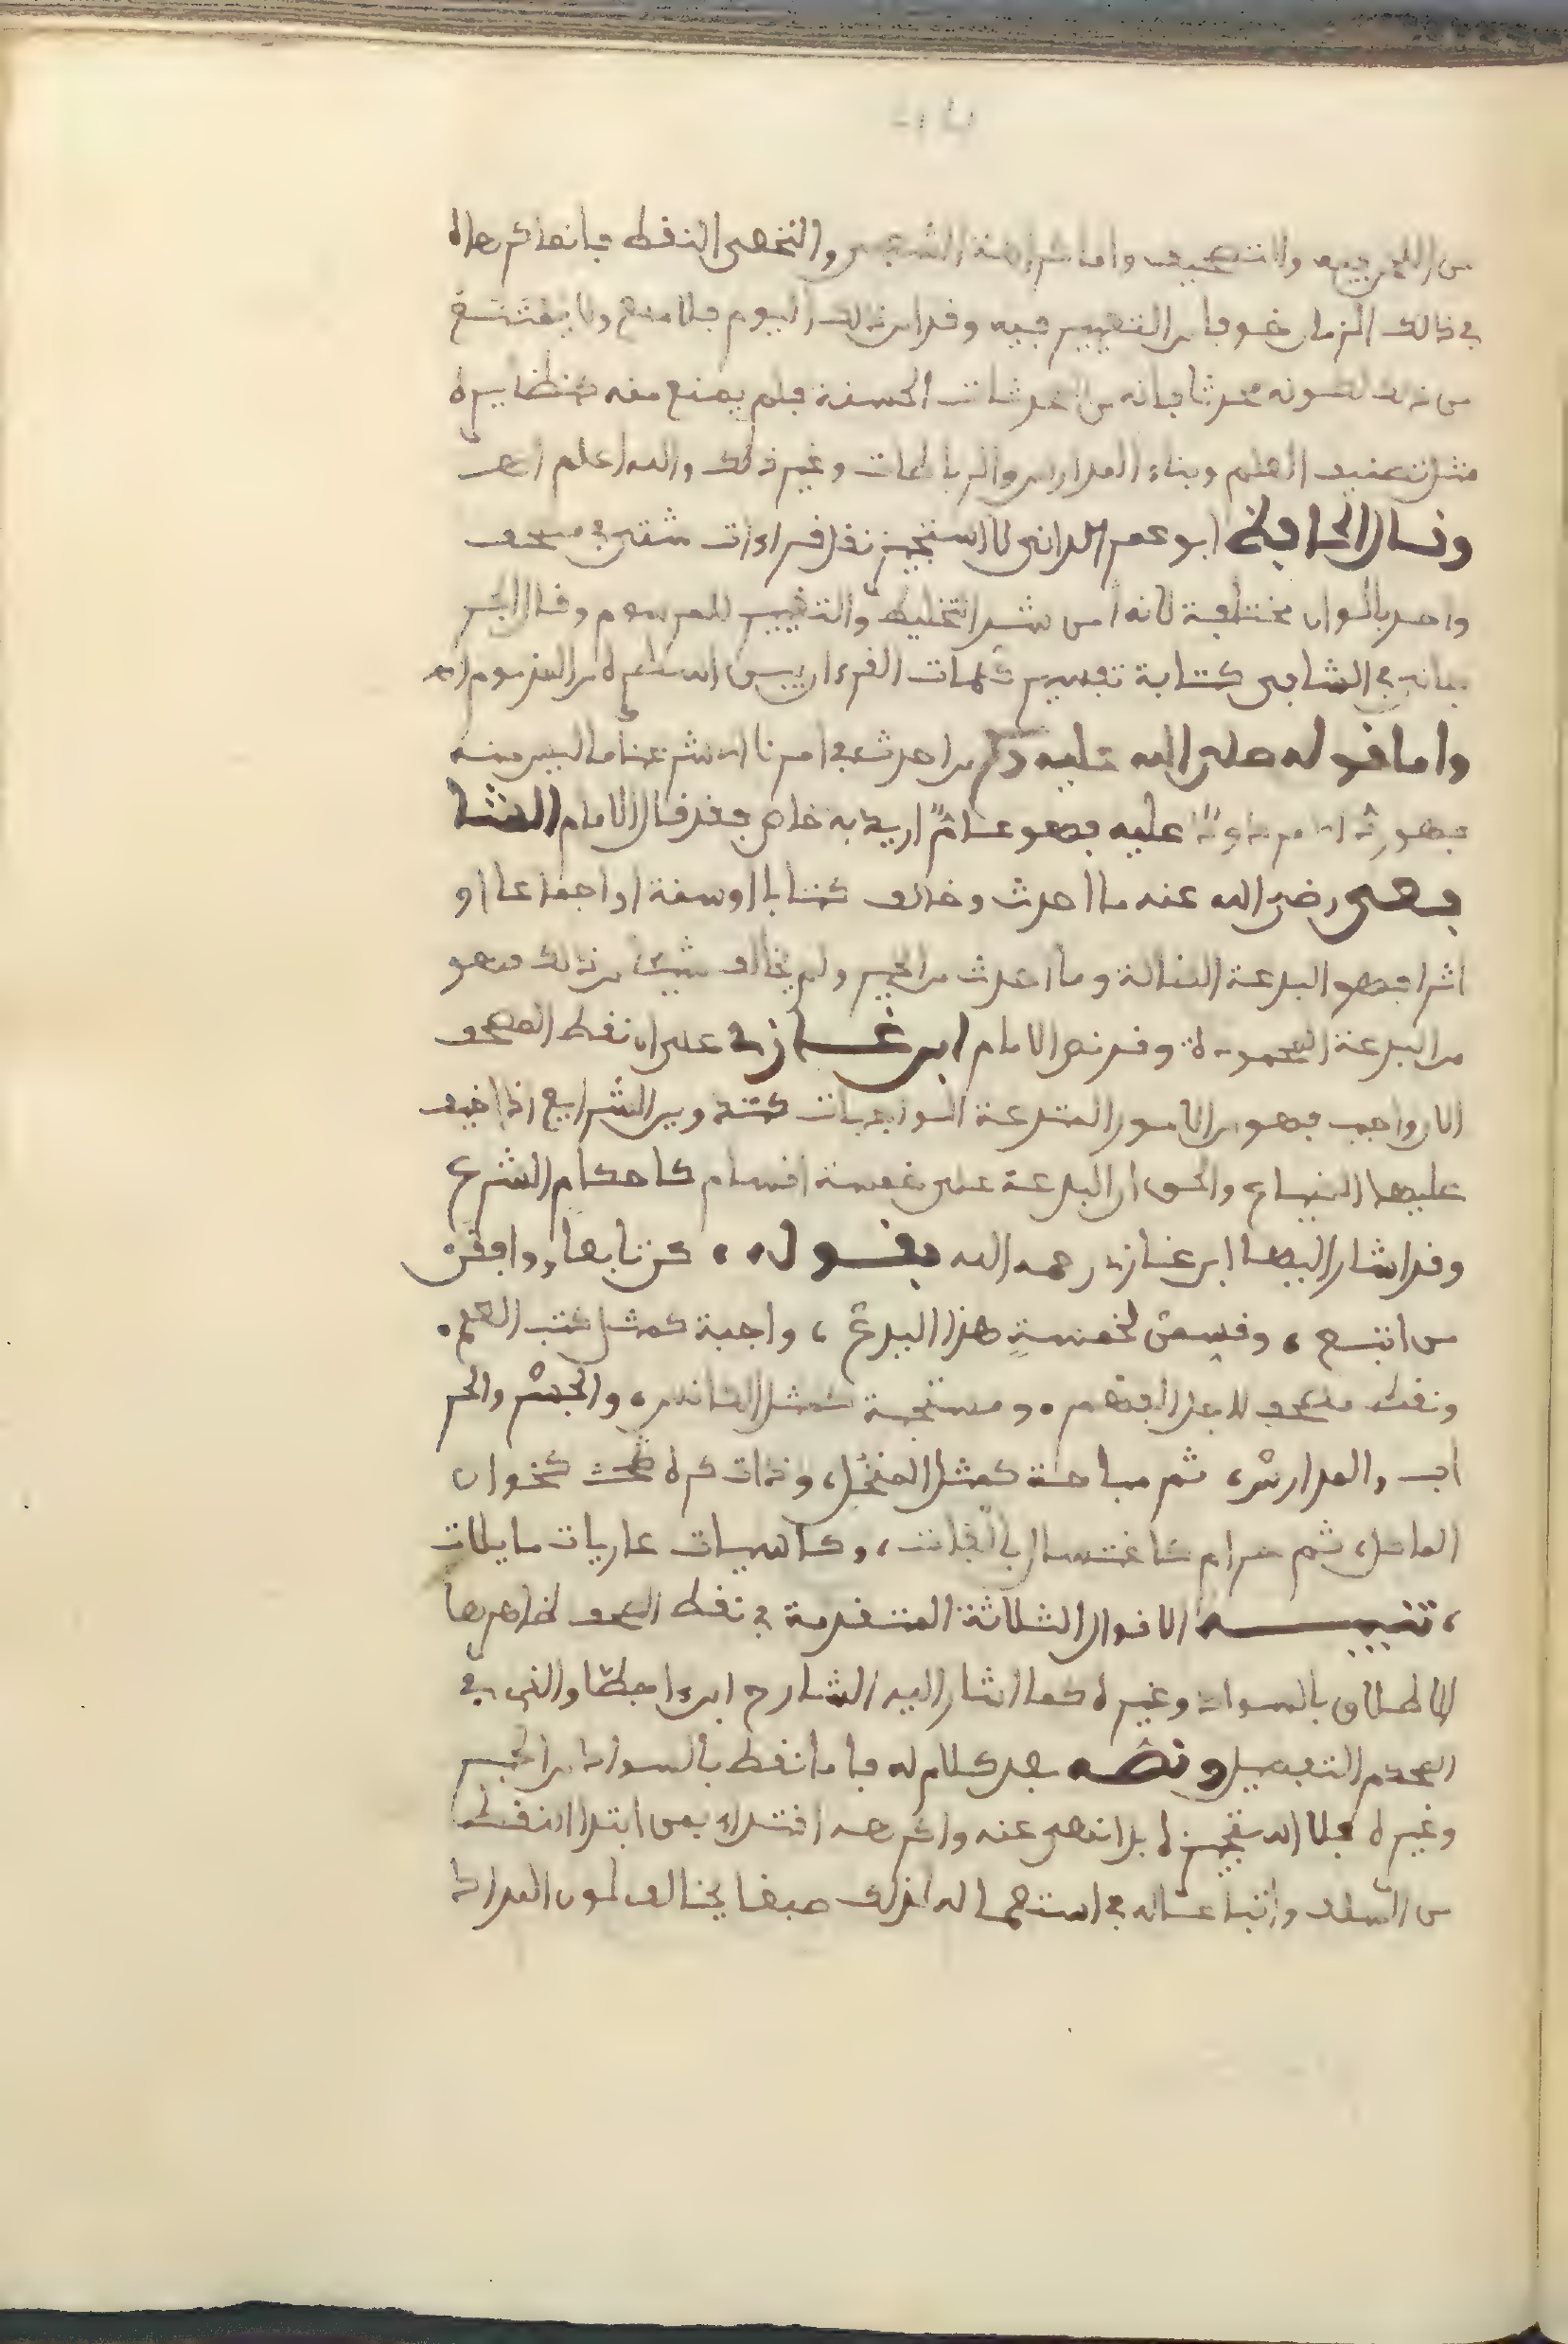 من اللحن فيه والتصحيف واما كراهة الشعبي والنخعي النقط فإنما كرهاه
في ذالك الزمان خوفا من التغيير فيه وقد امن ذلك اليوم فلا منع ولا يمتنع
من ذلك لكونه محدثا فإنه من المحدثات الحسنة فلم يمنع منه كنظايره
مثل تصنيف العلم وبناء المدارس والرباطات وغير ذلك والله اعلم اهـ
وقال الحافظ ابو عمر الداني لا استجيز نقل قراءات شتى في مصحف
واحد بالوان مختلفة لانه من اشد التخليط والتغيير للمرسوم وقال الجر
جاني في الشافي كتابة تفسير كلمات القرءان بين اسطره من المذموم اهـ
واما قوله صلى الله عليه وسلم من احدث في امرنا هذا ما ليس منه
فهو رد عليه فهو عام اريد به خاص فقد قال الامام الشا
فعي رضي الله عنه ما احدث وخالف كتابا او سنة او اجماعا او
اثرا فهو البدعة الضالة وما احدث من الخير ولم يخالف شيئا من ذلك فهو
من البدعة المحمودة وقد نص الامام ابن غازي على ان نقط المصحف
الان واجب فهو من الامور المبتدعة الواجبات كتدوين الشرايع اذا خيف
عليها الضياع والحق ان البدعة على خمسة اقسام كاحكام الشرع
وقد اشار اليها ابن غازي رحمه الله بقوله ، كن تابعا ووافقن
من اتبع ، وقسمن لخمسة هذا البدع ، واجبة كمثل كتب العلم ،
ونقط مصحف لاجل الفهم ، ومستحبة كمثل الكانس ، والجسر والمحر
اب والمدارس ، ثم مباحة كمثل المنخل ، وذات كره كخوان
الماكل ، ثم حرام كاغتسال بالفتات ، وكاسيات عاريات مايلات
، تنبيه الاقوال الثلاثة المتقدمة في نقط المصحف ظاهرها
الاطلاق بالسواد وغيره كما اشار اليه الشارح ابن اجطا والذي في
المحكم التفصيل ونصه بعد كلام له فاما نقط بالسواد من الحبر
وغيره فلا استجيزه بل انهى عنه وانكره اقتداء بمن ابتدا النقط
من السلف واتباعا له في استعماله لذلك صبغا يخالف لون المداد